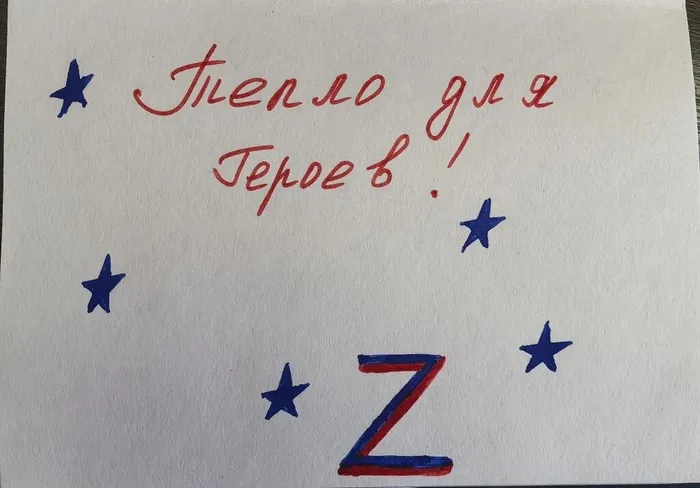 Тепло для
Героев!
Z